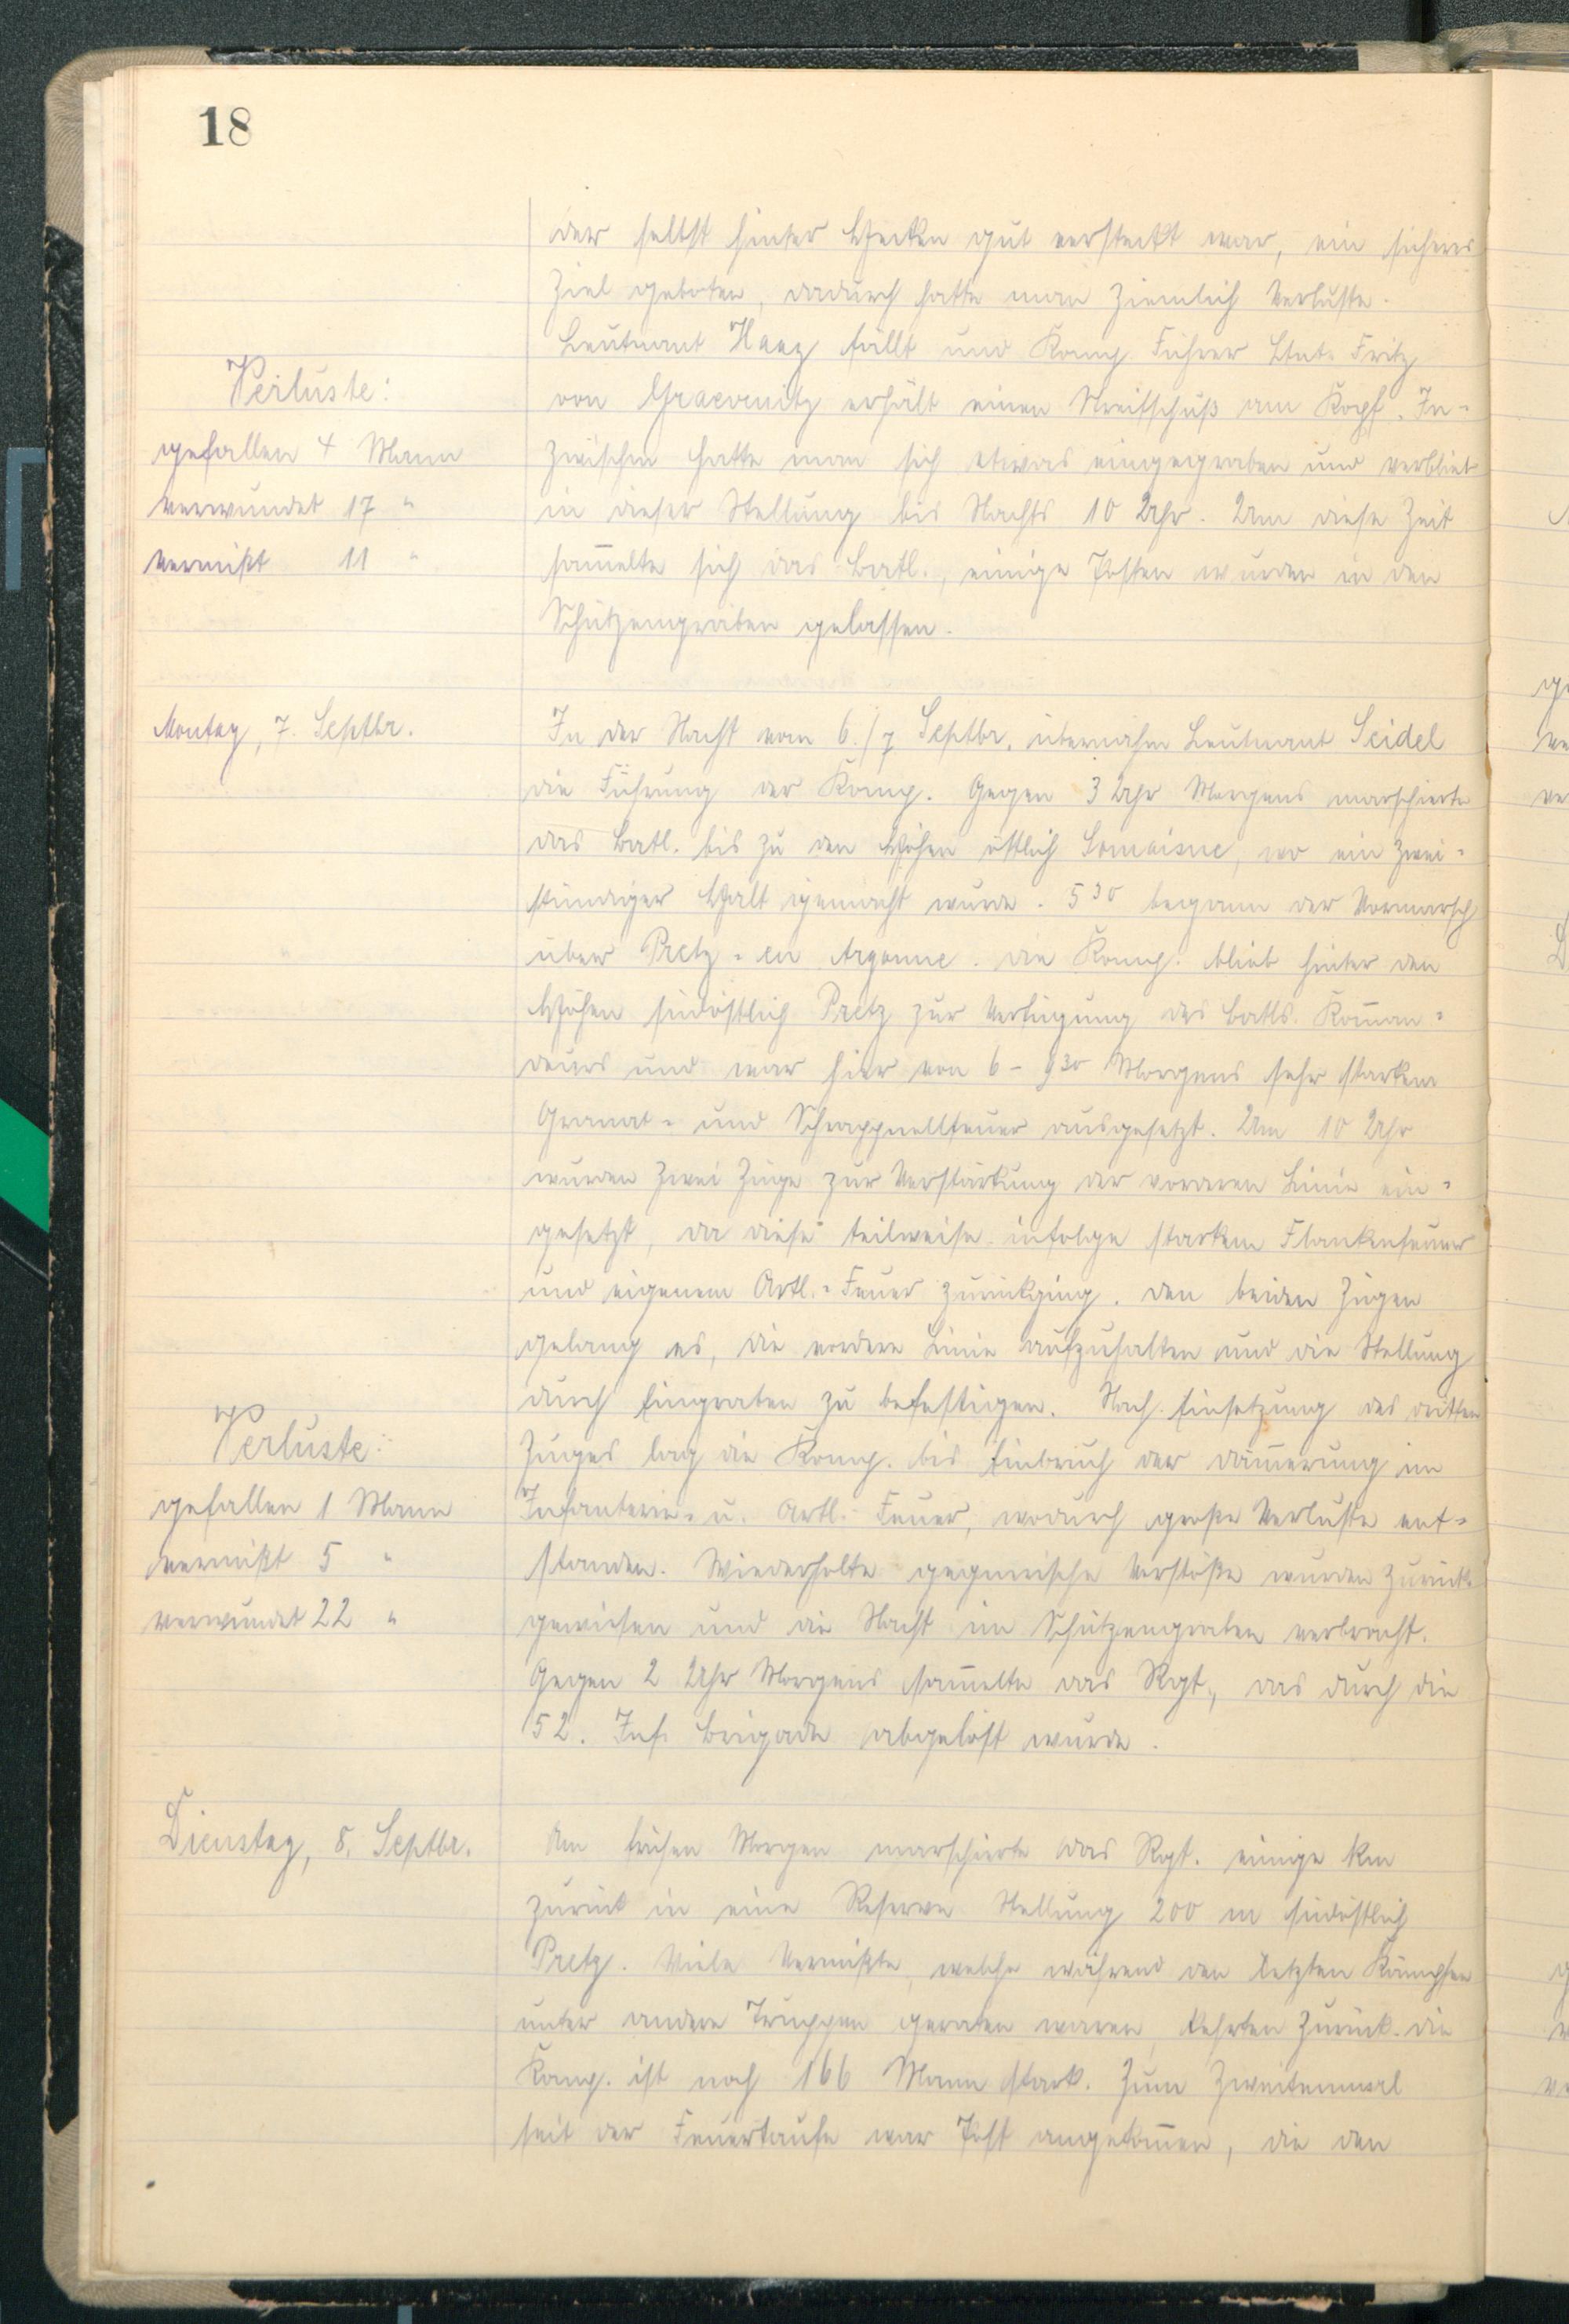 18
der selbst hinter Hecken gut versteckt war, ein sicheres
Ziel geboten, dadurch hatte man ziemlich Verluste.
Leutnant Haag fällt und Komp. Führer Ltnt. Fritz
von Graevenitz erhält einen Streifschuß am Kopf. In-
zwischen hatte man sich etwas eingegraben und verblieb
in dieser Stellung bis Nachts 10 Uhr. Um diese Zeit
sam̅elte sich das Batl., einige Posten wurden in den
Schützengräben gelassen.
Verluste:
gefallen 4 Mann
verwundet 17 "
vermißt 11 "
Montag, 7. Septbr.
In der Nacht vom 6./7 Septbr. übernahm Leutnant Seidel
die Führung der Komp. Gegen 3 Uhr Morgens marschierte
das Batl. bis zu den Höhen östlich Somaisne, wo ein zwei-
stündiger Halt gemacht wurde. 5 30 begann der Vormarsch
über Pretz-en Argonne. Die Komp. blieb hinter den
Höhen südöstlich Pretz zur Verfügung des Batls. Kom̅an-
deurs und war hier von 6 - 9 30 Morgens sehr starkem
Granat- und Schrappnellfeuer ausgesetzt. Um 10 Uhr
wurden zwei Züge zur Verstärkung der vorderen Linie ein-
gesetzt, da diese teilweise infolge starkem Flankenfeuer
und eigenem Artl.-Feuer zurückging. Den beiden Zügen
gelang es, die vordere Linie aufzuhalten und die Stellung
durch Eingraben zu befestigen. Nach Einsetzung des dritten
Zuges lag die Komp. bis Einbruch der Däm̅erung im
Infanterie- u. Artl. Feuer, wodurch große Verluste ent-
standen. Wiederholte gegnerische Vorstöße wurden zurück-
gewiesen und die Nacht im Schützengraben verbracht.
Gegen 2 Uhr Morgens sam̅elte das Rgt., das durch die
52. Inf. Brigade abgelöst wurde.
Verluste:
gefallen 1 Mann
vermißt 5 "
verwundet 22 "
Dienstag, 8. Septbr.
Am frühen Morgen marschierte das Rgt. einige km
zurück in eine Reserve Stellung 200 m südöstlich
Pretz. Viele Vermißte, welche während den letzten Kämpfen
unter andere Truppen geraten waren, kehrten zurück. Die
Komp. ist noch 166 Mann stark. Zum Zweitenmal
seit der Feuertaufe war Post angekom̅en, die den